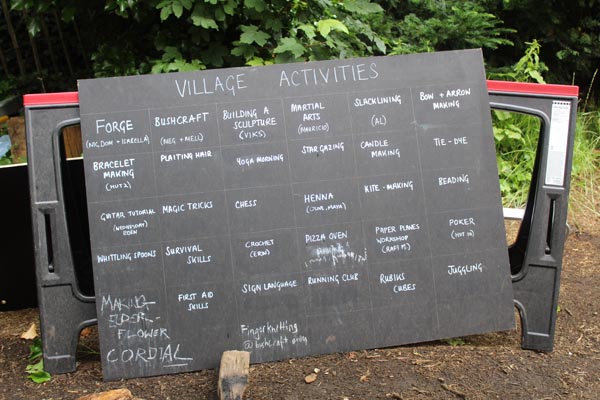 VILLAGE ACTIVITIES
FORGE
BUSHCRAFT
(MEG + NELL)
BUILDING A
SCULPTURE
(VIKS)
MARTIAL
ARTS
(MAURICIO)
SLACKLINING
(AL)
BOW + ARROW
MAKING
(NIC, DOM + ISABELLA)
BRACELET
MAKING
PLAITING HAIR
YOGA MORNING
STAR GAZING
CANDLE
MAKING
TIE-DYE
GUITAR TUTORIAL
(WEDNESDAY)
MAGIC TRICKS
CHESS
HENNA
KITE-MAKING
BEADING
WHITTLING SPOONS
SURVIVAL
SKILLS
CROCHET
(ERIN)
PIZZA OVEN
PAPER PLANES
WORKSHOP
POKER
MAKING
ELDER-
FLOWER
CORDIAL
FIRST AID
SKILLS
SIGN LANGUAGE
RUNNING CLUB
RUBIKS
CUBES
JUGGLING
Fingerknitting
@ bushcraft